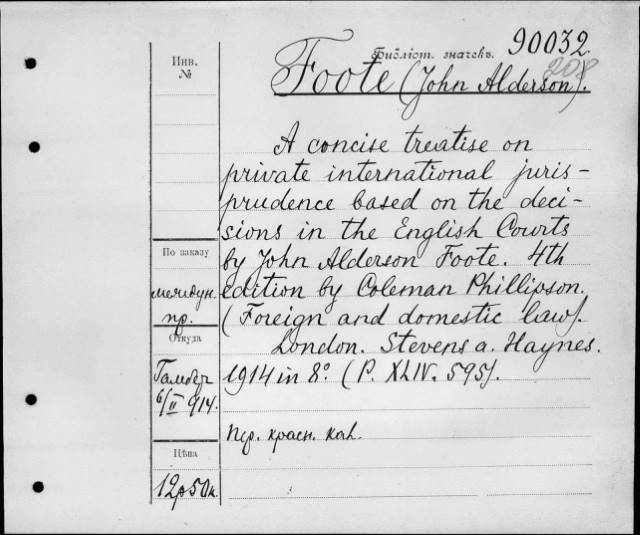 Библіот. значекъ.
90032.
208
Foote (John Alderson).
Инв.
№
A concise treatise on
private international juris-
prudence based on the deci-
sions in the English Courts
by John Alderson Foote. 4th
edition by Coleman Phillipson.
(Foreign and domestic law).
London. Stevens a. Haynes.
1914 in 8° (P. XLIV. 595).
Пер. красн. кал.
По заказу
междун.
пр.
Откуда
6/II 914.
Цѣна
12р50к.